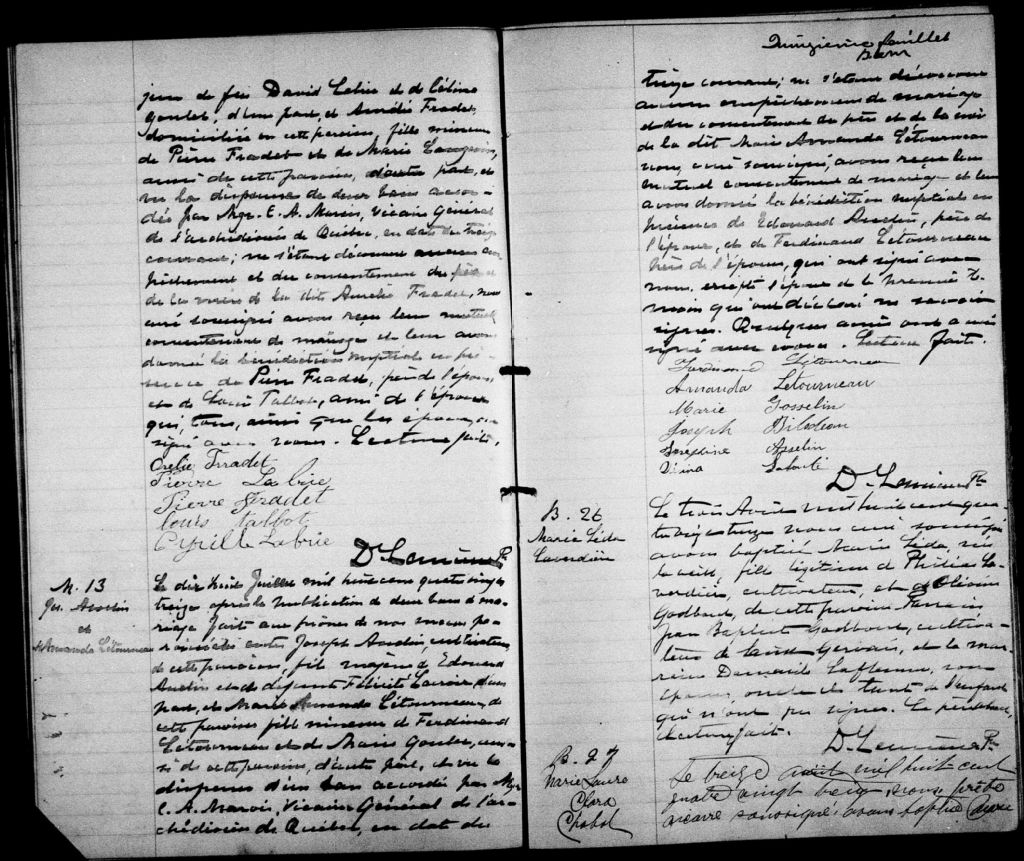 jeur de feu David Labrie et de Céline
Goulet, d'une part, et Amélie Fradet,
domiciliée en cette paroisse, fille mineure
de Pierre Fradet et de Marie
aussi de cette paroisse, d'autre part, et
vu la dispense de deux bans accor-
dés par Mgr. C. A. Marois, Vicaire Général
de l'archidiocèse de Québec, en date du treize
courant; ne s'étant découvert aucun em
pêchement et du consentement du père
de la mère de la dite Amélie Fradet, nous
curé soussigné avons reçu leur mutuel
consentement de mariage et leur avons
donné la bénédiction nuptiale en pré-
sence de Pierre Fradet, père de l'épouse
et de Louis Talbot, ami de l'époux
qui, tous, ainsi que les époux, ont
signé avec nous. Lecture faite.
Orélie Fradet
Pierre Labrie
Pierre Fradet
Louis Talbot
Cyrille Labrie
D. Lemieux Ptr
M. 13
Jos. Asselin
et
Amanda Létourneau
Le dix huit Juillet mil huit cent quatre vingt
treize, après la publication de deux bans de ma-
riage faite aux prônes de nos messes pa-
roissiales entre Joseph Asselin, cultivateur
de cette paroisse, fils majeur d'Edouard
Asselin et de défunte Félicité Lavoie, d'une
part, et Marie Amanda Létourneau, de
cette paroisse fille mineure de Ferdinand
Létourneau et de Marie Goulet, aus-
si de cette paroisse, d'autre part, et vu la
dispense d'un ban accordée par Mgr
C. A. Marois, Vicaire Général de l'ar-
chidiocèse de Québec, en date du
Quinzième feuillet
treize courant; ne s'étant découvert
aucun empêchement de mariage
et du consentement du père et de la mère
de la dite Marie Amanda Létourneau
nous, curé soussigné, avons reçu leur
mutuel consentement de mariage et leur
avons donné la bénédiction nuptiale en
présence de Edouard Asselin, père de
l'époux, et de Ferdinand Létourneau
père de l'épouse, qui ont signé avec
nous, excepté l'époux et le premier té-
moin qui ont déclaré ne savoir
signer. Quelques amis ont aussi
signé avec nous. Lecture faite.
Ferdinand Létourneau
Amanda Letourneau
Marie Gosselin
Joseph Bilodeau
Josephine Asselin
D. Lemieux Ptr
B. 26
Marie Lida
Laverdière
Le trois Août mil huit cent qua-
tre vingt treize nous curé soussigné
avons baptisé Marie Lida, née
la veille, fille légitime de Philéas La-
verdière, cultivateur, et d'Olivine
Godbout, de cette paroisse. Parrain
Jean Baptiste Godbout, cultiva-
teur de Saint Gervais, et la mar-
raine Laflamme, son
épouse, oncle et tante de l'enfant
qui n'ont pu signer. Le père
Lecture faite.
D. Lemieux Ptr
B. 27
Marie Laure
Clara
Chabot
Le treize août mil huit cent
quatre vingt treize nous, prêtre
vicaire soussigné, avons baptisé Marie